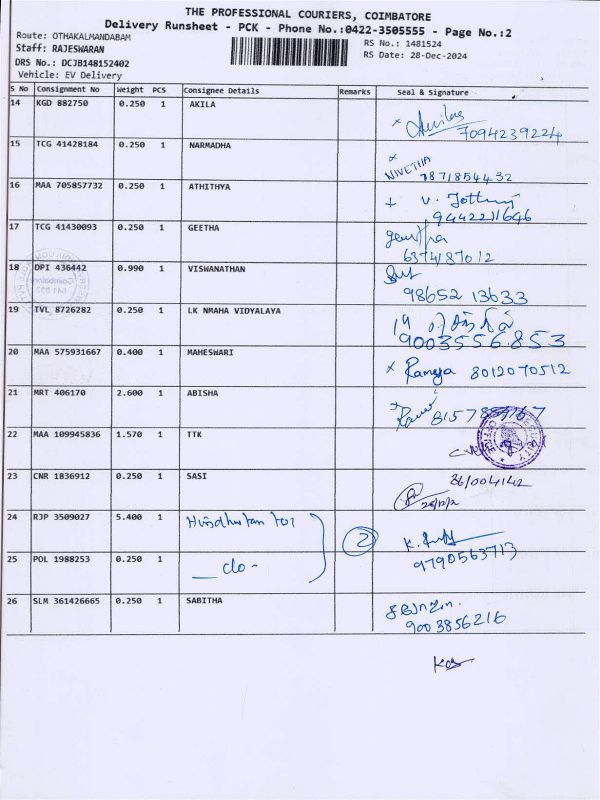 THE PROFESSIONAL COURIERS, COIMBATORE
Delivery Runsheet - PCK - Phone No.:0422-3505555 - Page No.:2
Route: OTHAKALMANDABAM
RS No.: 1481524
Staff: RAJESWARAN
RS Date: 28-Dec-2024
DRS No.: DCJB148152402
Vehicle: EV Delivery
S No Consignment No Weight PCS Consignee Details Remarks Seal & Signature
14 KGD 882750 0.250 1 AKILA
7094239224
15 TCG 41428184 0.250 1 NARMADHA
NIVETHA 7871854432
16 MAA 705857732 0.250 1 ATHITHYA
9442211646
17 TCG 41430093 0.250 1 GEETHA
6374187012
18 DPI 436442 0.990 1 VISWANATHAN
98652 13633
19 TVL 8726282 0.250 1 LK NMAHA VIDYALAYA
9003556853
20 MAA 575931667 0.400 1 MAHESWARI
Ramya 8012070512
21 MRT 406170 2.600 1 ABISHA
22 MAA 109945836 1.570 1 TTK
SECURITY OFFICE
23 CNR 1836912 0.250 1 SASI
24 RJP 3509027 5.400 1
2
25 POL 1988253 0.250 1 -do-
9790563713
26 SLM 361426665 0.250 1 SABITHA
9003856216